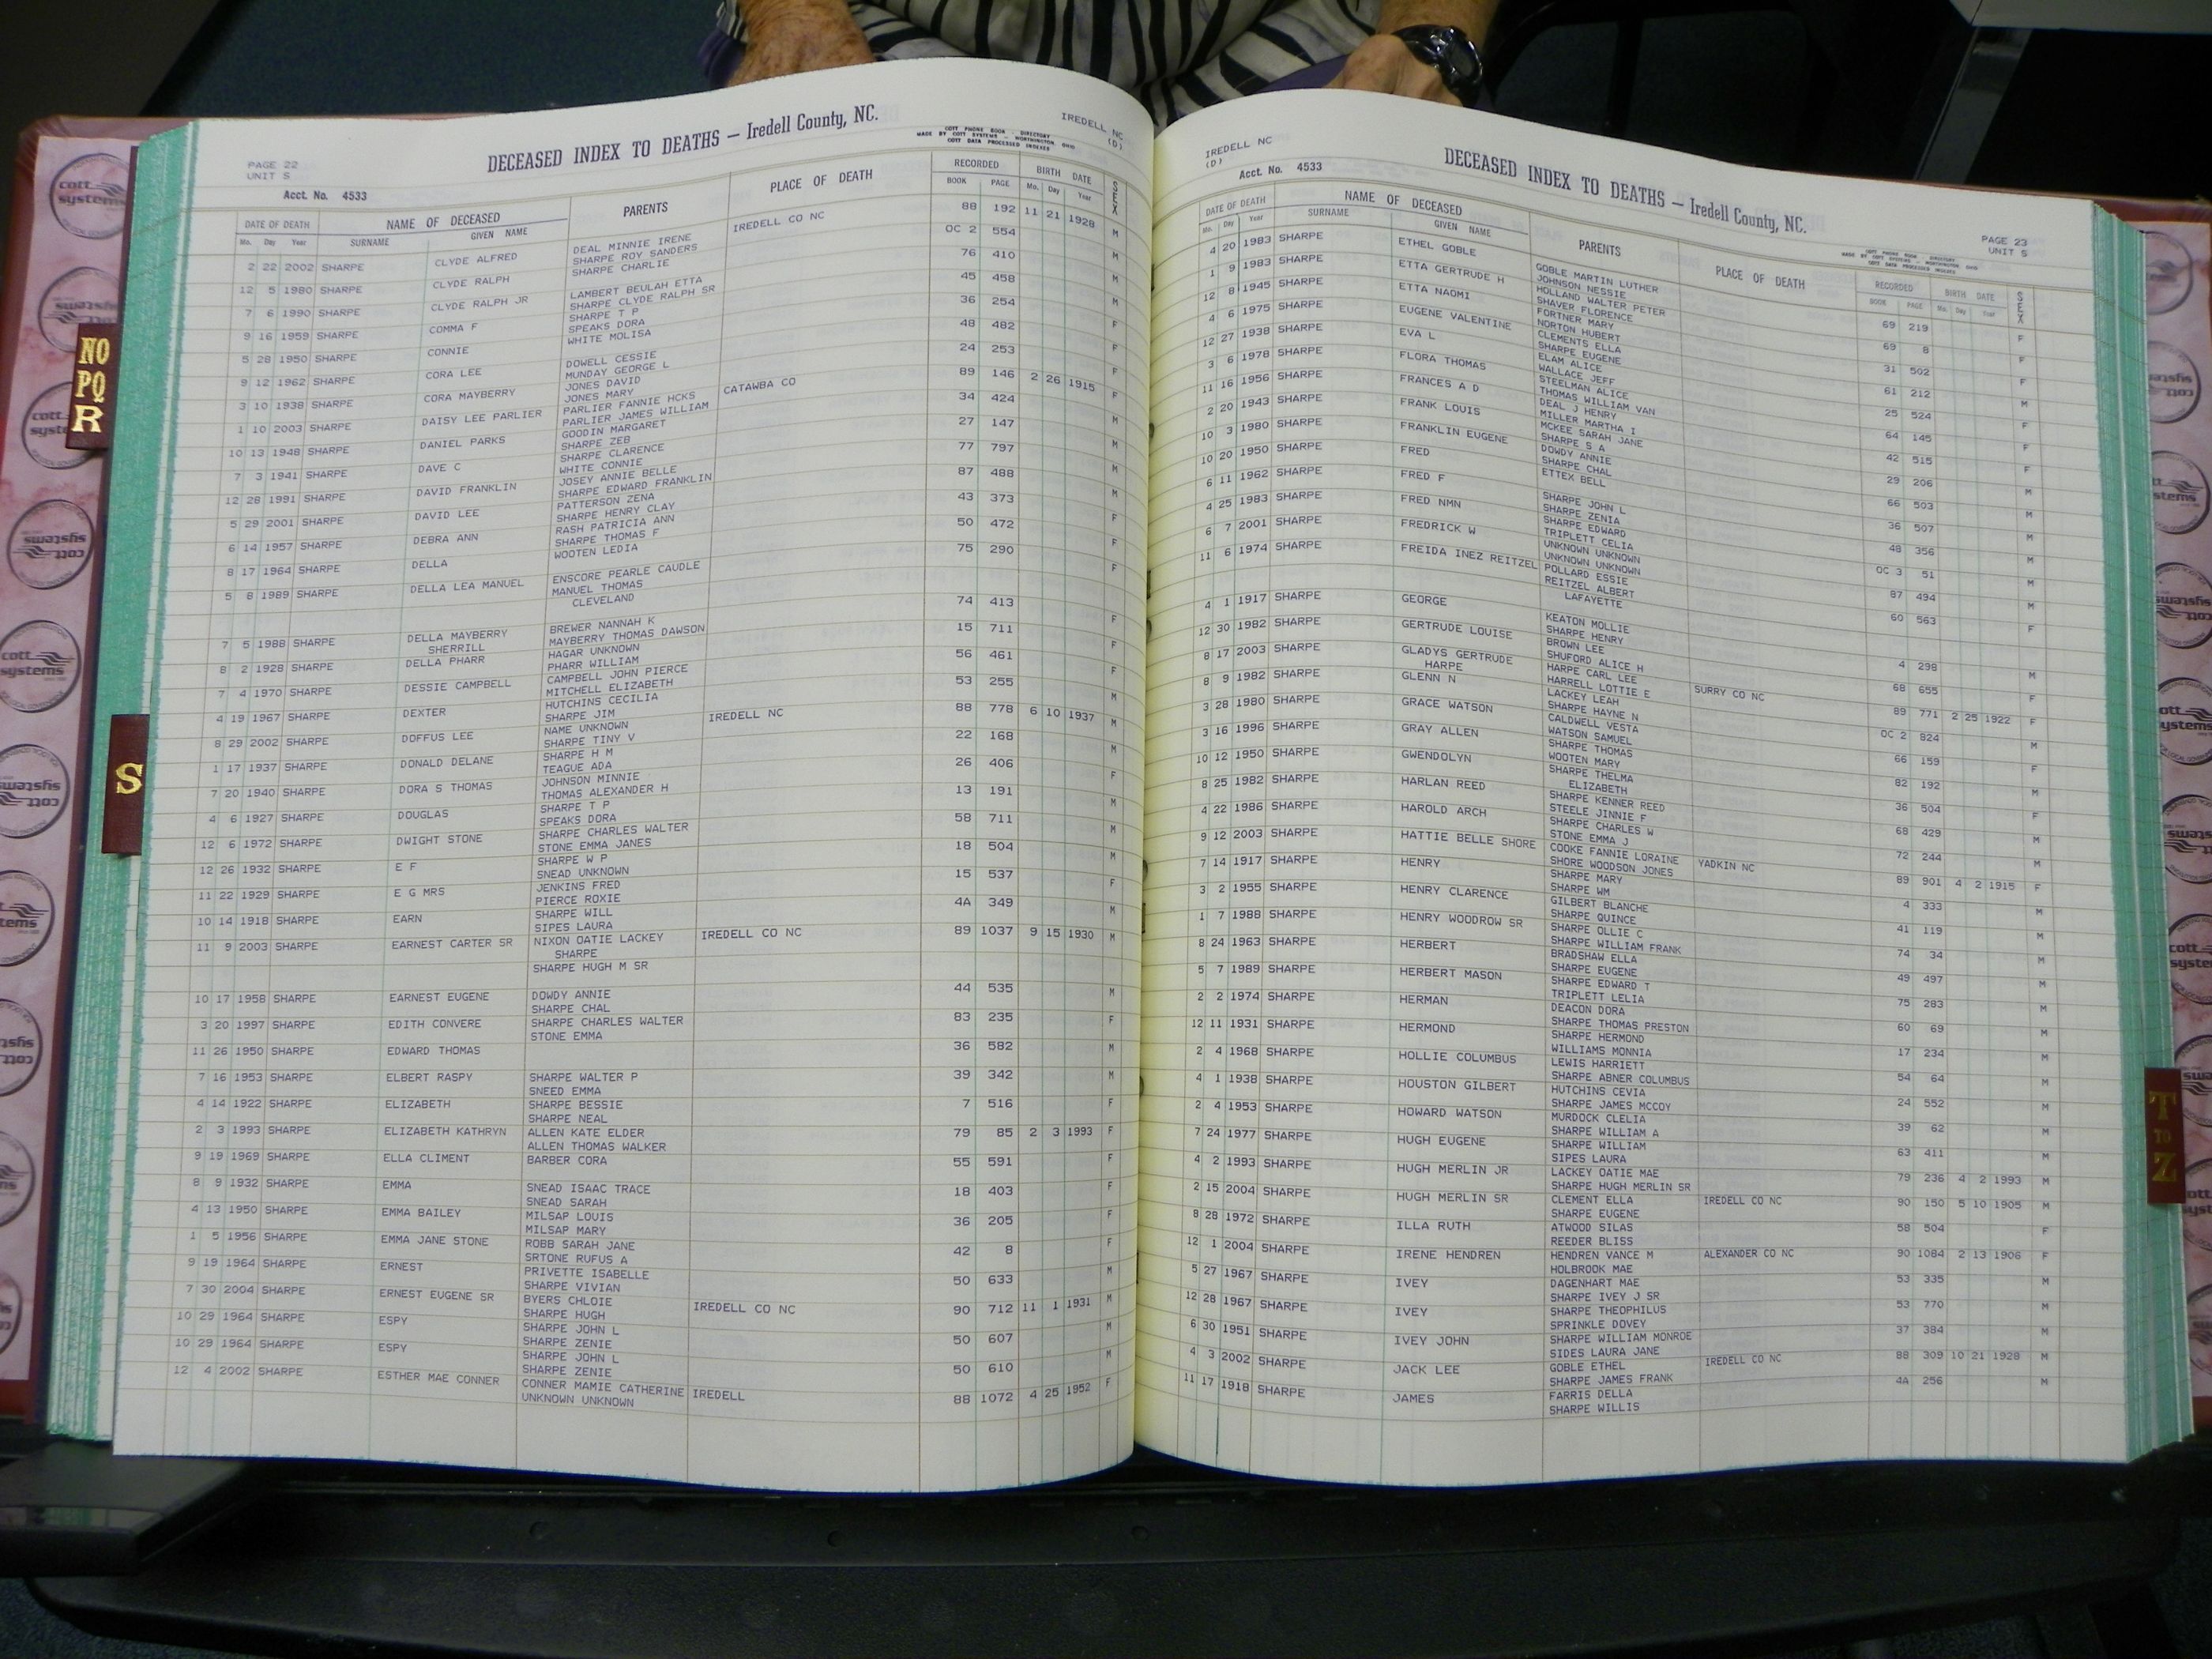 DECEASED INDEX TO DEATHS — Iredell County, NC.
PAGE 22
UNIT S
Acct. No. 4533
COTT PHONE BOOK - DIRECTORY
MADE BY COTT SYSTEMS - WORTHINGTON, OHIO
COTT DATA PROCESSED INDEXES
IREDELL NC
(D)
DATE OF DEATH NAME OF DECEASED PARENTS PLACE OF DEATH RECORDED BIRTH DATE SEX
Mo. Day Year SURNAME GIVEN NAME BOOK PAGE Mo. Day Year
2 22 2002 SHARPE CLYDE ALFRED DEAL MINNIE IRENE IREDELL CO NC 88 192 11 21 1928 M
SHARPE ROY SANDERS
12 5 1980 SHARPE CLYDE RALPH SHARPE CHARLIE OC 2 554 M
7 6 1990 SHARPE CLYDE RALPH JR LAMBERT BEULAH ETTA 76 410 M
SHARPE CLYDE RALPH SR
9 16 1959 SHARPE COMMA F SHARPE T P 45 458 F
SPEAKS DORA
5 28 1950 SHARPE CONNIE WHITE MOLISA 36 254 F
9 12 1962 SHARPE CORA LEE DOWELL CESSIE 48 482 F
MUNDAY GEORGE L
3 10 1938 SHARPE CORA MAYBERRY JONES DAVID 24 253 F
JONES MARY
1 10 2003 SHARPE DAISY LEE PARLIER PARLIER FANNIE HCKS CATAWBA CO 89 146 2 26 1915 F
PARLIER JAMES WILLIAM
10 13 1948 SHARPE DANIEL PARKS GOODIN MARGARET 34 424 M
SHARPE ZEB
7 3 1941 SHARPE DAVE C SHARPE CLARENCE 27 147 M
WHITE CONNIE
12 28 1991 SHARPE DAVID FRANKLIN JOSEY ANNIE BELLE 77 797 M
SHARPE EDWARD FRANKLIN
5 29 2001 SHARPE DAVID LEE PATTERSON ZENA 87 488 M
SHARPE HENRY CLAY
6 14 1957 SHARPE DEBRA ANN RASH PATRICIA ANN 43 373 F
SHARPE THOMAS F
8 17 1964 SHARPE DELLA WOOTEN LEDIA 50 472 F
5 8 1989 SHARPE DELLA LEA MANUEL ENSCORE PEARLE CAUDLE 75 290 F
MANUEL THOMAS
CLEVELAND
7 5 1988 SHARPE DELLA MAYBERRY BREWER NANNAH K 74 413 F
SHERRILL MAYBERRY THOMAS DAWSON
8 2 1928 SHARPE DELLA PHARR HAGAR UNKNOWN 15 711 F
PHARR WILLIAM
7 4 1970 SHARPE DESSIE CAMPBELL CAMPBELL JOHN PIERCE 56 461 F
MITCHELL ELIZABETH
4 19 1967 SHARPE DEXTER HUTCHINS CECILIA 53 255 M
SHARPE JIM
8 29 2002 SHARPE DOFFUS LEE NAME UNKNOWN IREDELL NC 88 778 6 10 1937 M
SHARPE TINY V
1 17 1937 SHARPE DONALD DELANE SHARPE H M 22 168 M
TEAGUE ADA
7 20 1940 SHARPE DORA S THOMAS JOHNSON MINNIE 26 406 F
THOMAS ALEXANDER H
4 6 1927 SHARPE DOUGLAS SHARPE T P 13 191 M
SPEAKS DORA
12 6 1972 SHARPE DWIGHT STONE SHARPE CHARLES WALTER 58 711 M
STONE EMMA JANES
12 26 1932 SHARPE E F SHARPE W P 18 504 M
SNEAD UNKNOWN
11 22 1929 SHARPE E G MRS JENKINS FRED 15 537 F
PIERCE ROXIE
10 14 1918 SHARPE EARN SHARPE WILL 4A 349 M
SIPES LAURA
11 9 2003 SHARPE EARNEST CARTER SR NIXON OATIE LACKEY IREDELL CO NC 89 1037 9 15 1930 M
SHARPE
SHARPE HUGH M SR
10 17 1958 SHARPE EARNEST EUGENE DOWDY ANNIE 44 535 M
SHARPE CHAL
3 20 1997 SHARPE EDITH CONVERE SHARPE CHARLES WALTER 83 235 F
STONE EMMA
11 26 1950 SHARPE EDWARD THOMAS 36 582 M
7 16 1953 SHARPE ELBERT RASPY SHARPE WALTER P 39 342 M
SNEED EMMA
4 14 1922 SHARPE ELIZABETH SHARPE BESSIE 7 516 F
SHARPE NEAL
2 3 1993 SHARPE ELIZABETH KATHRYN ALLEN KATE ELDER 79 85 2 3 1993 F
ALLEN THOMAS WALKER
9 19 1969 SHARPE ELLA CLIMENT BARBER CORA 55 591 F
8 9 1932 SHARPE EMMA SNEAD ISAAC TRACE 18 403 F
SNEAD SARAH
4 13 1950 SHARPE EMMA BAILEY MILSAP LOUIS 36 205 F
MILSAP MARY
1 5 1956 SHARPE EMMA JANE STONE ROBB SARAH JANE 42 8 F
SRTONE RUFUS A
9 19 1964 SHARPE ERNEST PRIVETTE ISABELLE 50 633 M
SHARPE VIVIAN
7 30 2004 SHARPE ERNEST EUGENE SR BYERS CHLOIE IREDELL CO NC 90 712 11 1 1931 M
SHARPE HUGH
10 29 1964 SHARPE ESPY SHARPE JOHN L 50 607 M
SHARPE ZENIE
10 29 1964 SHARPE ESPY SHARPE JOHN L 50 610 M
SHARPE ZENIE
12 4 2002 SHARPE ESTHER MAE CONNER CONNER MAMIE CATHERINE IREDELL 88 1072 4 25 1952 F
UNKNOWN UNKNOWN
IREDELL NC
(D)
Acct. No. 4533
DECEASED INDEX TO DEATHS — Iredell County, NC.
PAGE 23
UNIT S
DATE OF DEATH NAME OF DECEASED PARENTS PLACE OF DEATH RECORDED BIRTH DATE SEX
Mo. Day Year SURNAME GIVEN NAME BOOK PAGE Mo. Day Year
4 20 1983 SHARPE ETHEL GOBLE GOBLE MARTIN LUTHER 69 219 F
JOHNSON NESSIE
1 9 1983 SHARPE ETTA GERTRUDE H HOLLAND WALTER PETER 69 8 F
SHAVER FLORENCE
12 8 1945 SHARPE ETTA NAOMI FORTNER MARY 31 502 F
NORTON HUBERT
4 6 1975 SHARPE EUGENE VALENTINE CLEMENTS ELLA 61 212 M
SHARPE EUGENE
12 27 1938 SHARPE EVA L ELAM ALICE 25 524 F
WALLACE JEFF
3 6 1978 SHARPE FLORA THOMAS STEELMAN ALICE 64 145 F
THOMAS WILLIAM VAN
11 16 1956 SHARPE FRANCES A D DEAL J HENRY 42 515 F
MILLER MARTHA I
2 20 1943 SHARPE FRANK LOUIS MCKEE SARAH JANE 29 206 M
SHARPE S A
10 3 1980 SHARPE FRANKLIN EUGENE DOWDY ANNIE 66 503 M
SHARPE CHAL
10 20 1950 SHARPE FRED ETTEX BELL 36 507 M
6 11 1962 SHARPE FRED F SHARPE JOHN L 48 356 M
SHARPE ZENIA
4 25 1983 SHARPE FRED NMN SHARPE EDWARD OC 3 51 M
TRIPLETT CELIA
6 7 2001 SHARPE FREDRICK W UNKNOWN UNKNOWN 87 494 M
UNKNOWN UNKNOWN
11 6 1974 SHARPE FREIDA INEZ REITZEL POLLARD ESSIE 60 563 F
REITZEL ALBERT
LAFAYETTE
4 1 1917 SHARPE GEORGE KEATON MOLLIE 4 298 M
SHARPE HENRY
12 30 1982 SHARPE GERTRUDE LOUISE BROWN LEE 68 655 F
SHUFORD ALICE H
8 17 2003 SHARPE GLADYS GERTRUDE HARPE CARL LEE SURRY CO NC 89 771 2 25 1922 F
HARPE HARRELL LOTTIE E
8 9 1982 SHARPE GLENN N LACKEY LEAH OC 2 824 M
SHARPE HAYNE N
3 28 1980 SHARPE GRACE WATSON CALDWELL VESTA 66 159 F
WATSON SAMUEL
3 16 1996 SHARPE GRAY ALLEN SHARPE THOMAS 82 192 M
WOOTEN MARY
10 12 1950 SHARPE GWENDOLYN SHARPE THELMA 36 504 F
ELIZABETH
8 25 1982 SHARPE HARLAN REED SHARPE KENNER REED 68 429 M
STEELE JINNIE F
4 22 1986 SHARPE HAROLD ARCH SHARPE CHARLES W 72 244 M
STONE EMMA J
9 12 2003 SHARPE HATTIE BELLE SHORE COOKE FANNIE LORAINE YADKIN NC 89 901 4 2 1915 F
SHORE WOODSON JONES
7 14 1917 SHARPE HENRY SHARPE MARY 4 333 M
SHARPE WM
3 2 1955 SHARPE HENRY CLARENCE GILBERT BLANCHE 41 119 M
SHARPE QUINCE
1 7 1988 SHARPE HENRY WOODROW SR SHARPE OLLIE C 74 34 M
SHARPE WILLIAM FRANK
8 24 1963 SHARPE HERBERT BRADSHAW ELLA 49 497 M
SHARPE EUGENE
5 7 1989 SHARPE HERBERT MASON SHARPE EDWARD T 75 283 M
TRIPLETT LELIA
2 2 1974 SHARPE HERMAN DEACON DORA 60 69 M
SHARPE THOMAS PRESTON
12 11 1931 SHARPE HERMOND SHARPE HERMOND 17 234 M
WILLIAMS MONNIA
2 4 1968 SHARPE HOLLIE COLUMBUS LEWIS HARRIETT 54 64 M
SHARPE ABNER COLUMBUS
4 1 1938 SHARPE HOUSTON GILBERT HUTCHINS CEVIA 24 552 M
SHARPE JAMES MCCOY
2 4 1953 SHARPE HOWARD WATSON MURDOCK CLELIA 39 62 M
SHARPE WILLIAM A
7 24 1977 SHARPE HUGH EUGENE SHARPE WILLIAM 63 411 M
SIPES LAURA
4 2 1993 SHARPE HUGH MERLIN JR LACKEY OATIE MAE 79 236 4 2 1993 M
SHARPE HUGH MERLIN SR
2 15 2004 SHARPE HUGH MERLIN SR CLEMENT ELLA IREDELL CO NC 90 150 5 10 1905 M
SHARPE EUGENE
8 28 1972 SHARPE ILLA RUTH ATWOOD SILAS 58 504 F
REEDER BLISS
12 1 2004 SHARPE IRENE HENDREN HENDREN VANCE M ALEXANDER CO NC 90 1084 2 13 1906 F
HOLBROOK MAE
5 27 1967 SHARPE IVEY DAGENHART MAE 53 335 M
SHARPE IVEY J SR
12 28 1967 SHARPE IVEY SHARPE THEOPHILUS 53 770 M
SPRINKLE DOVEY
6 30 1951 SHARPE IVEY JOHN SHARPE WILLIAM MONROE 37 384 M
SIDES LAURA JANE
4 3 2002 SHARPE JACK LEE GOBLE ETHEL IREDELL CO NC 88 309 10 21 1928 M
SHARPE JAMES FRANK
11 17 1918 SHARPE JAMES FARRIS DELLA 4A 256 M
SHARPE WILLIS
NO
PQ
R
S
T
TO
Z
cott
systems